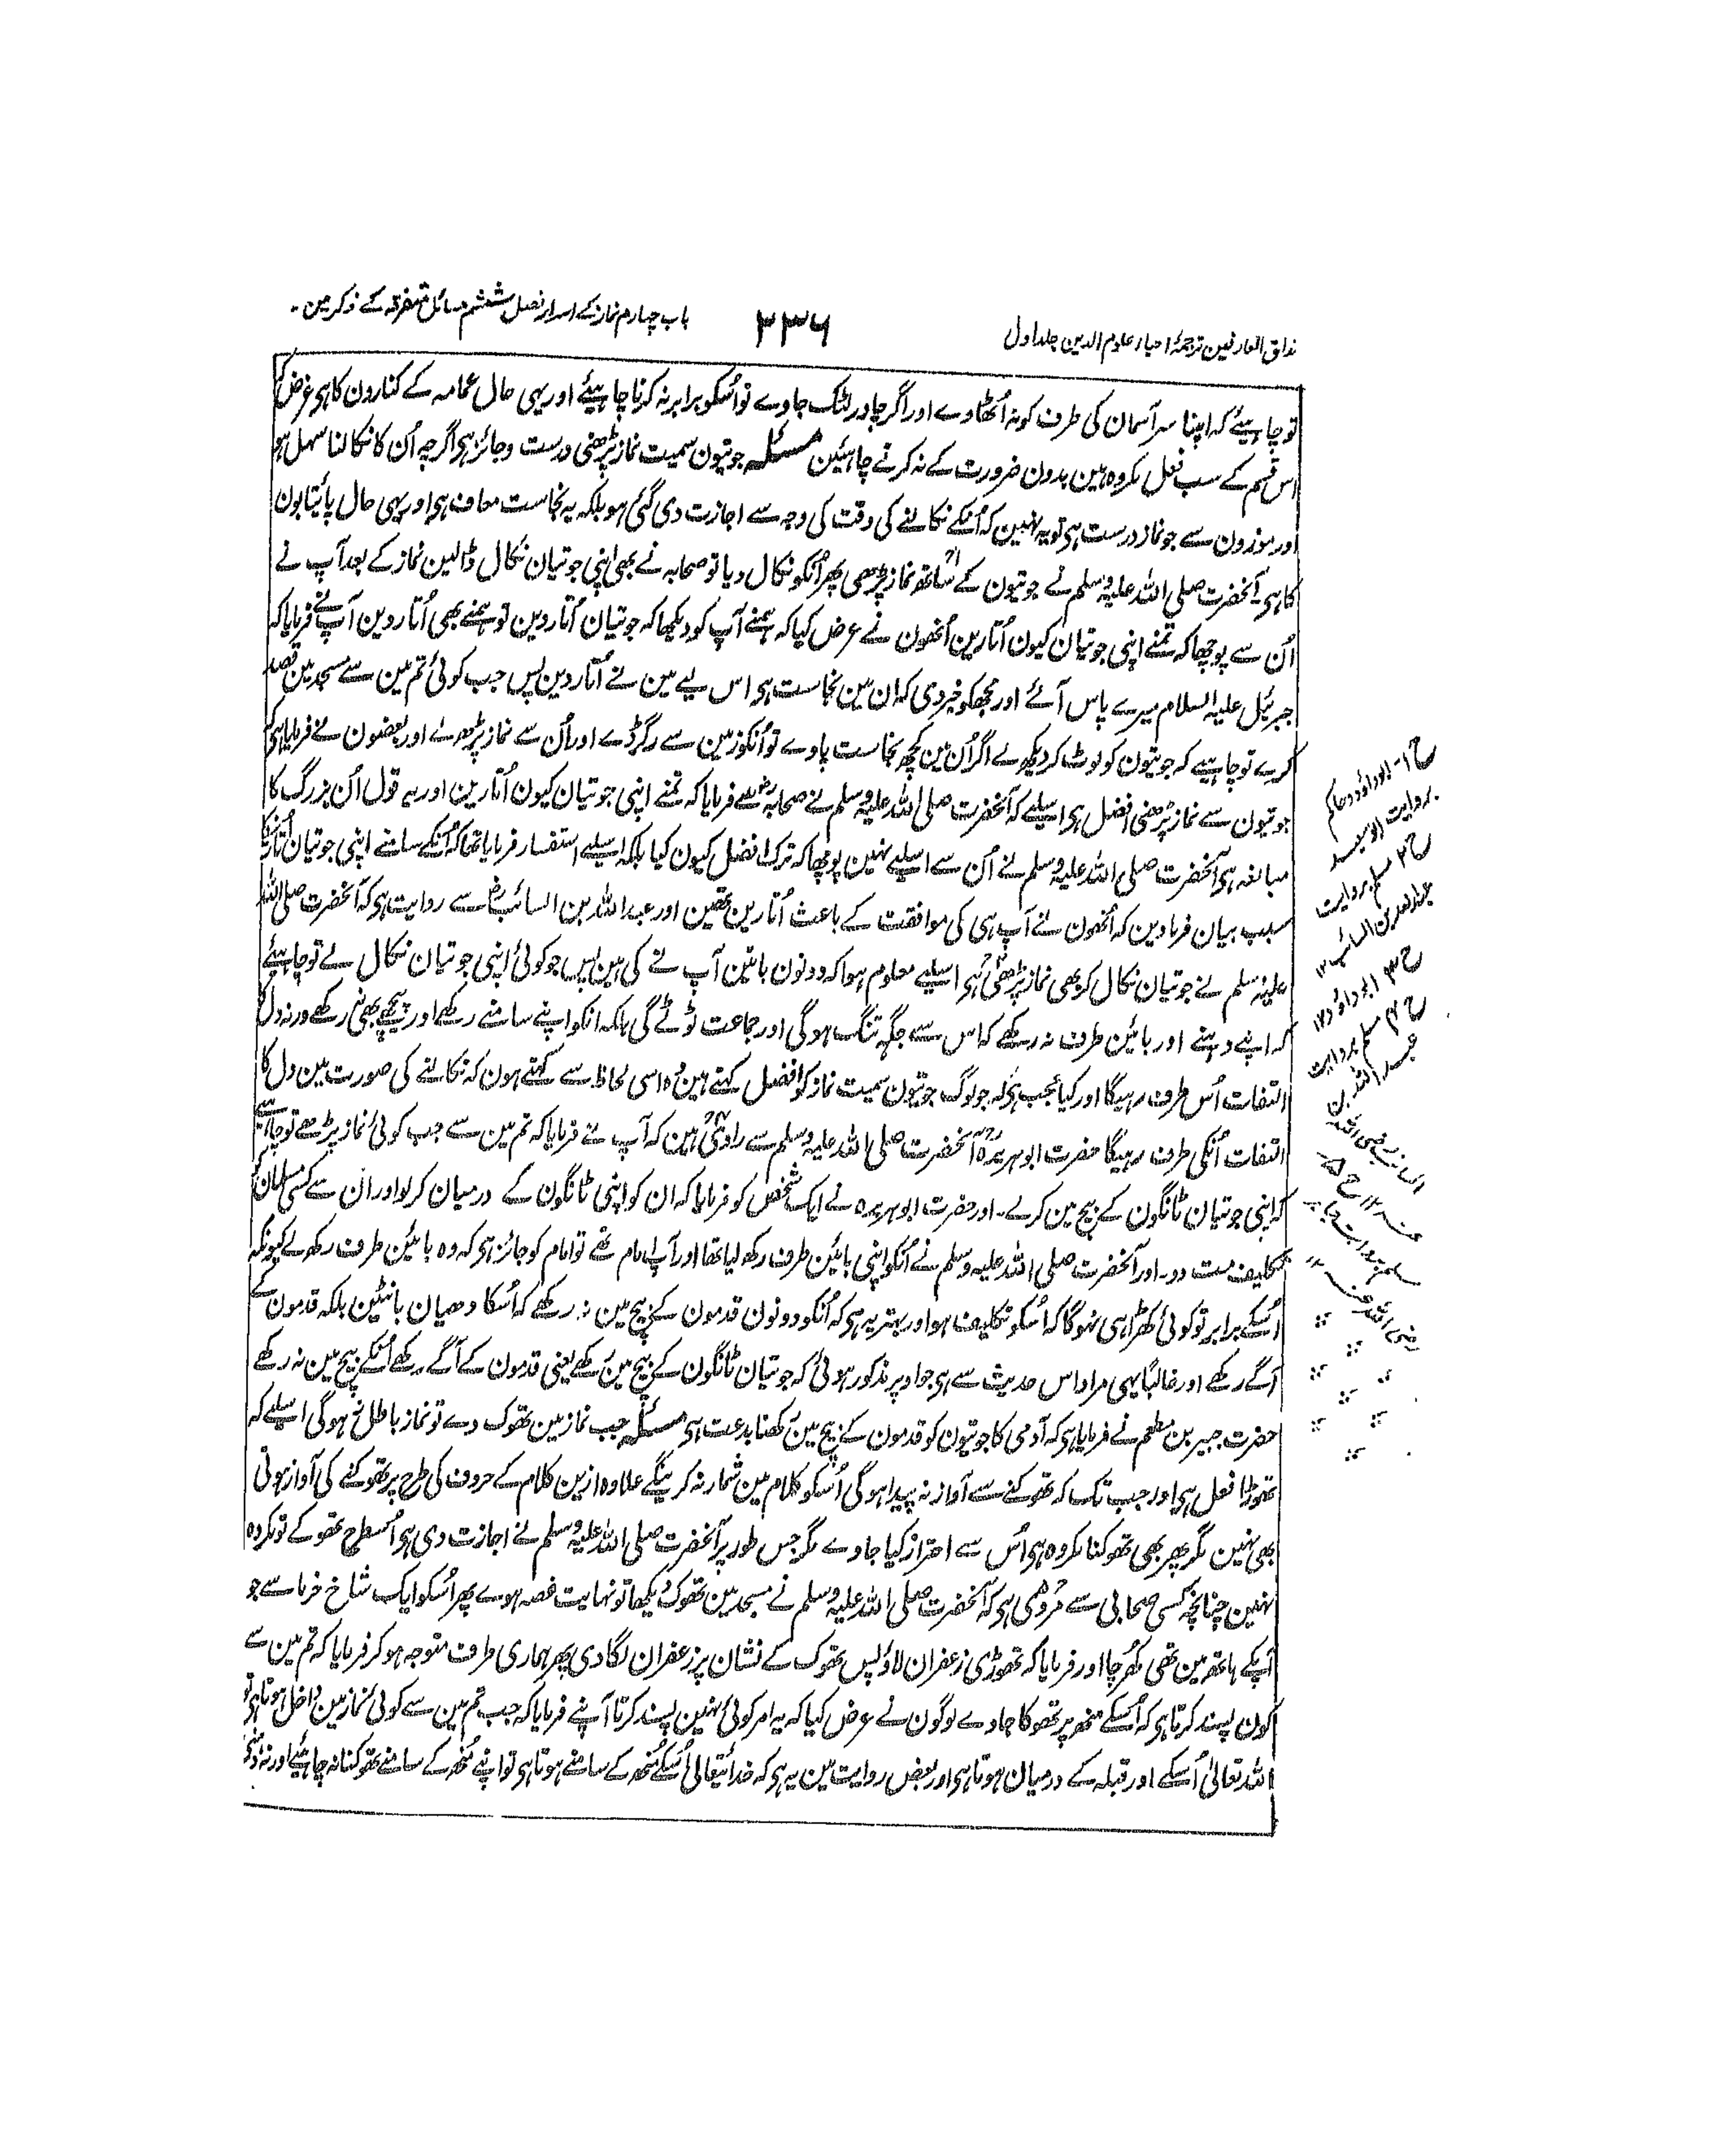 مذاق العارفین ترجمۂ احیاء علوم الدین جلد اول
۳۳۶
باب چہارم نماز کے اسرار فصل ششم مسائل متفرقہ کے ذکر مین۔
تو چاہیئے کہ اپنا سر آسمان کی طرف کو نہ اُٹھاوے اور اگر چادر لٹک جاوے تو اُسکو برابر نہ کرنا چاہیئے اور یہی حال عمامہ کے کنارون کا ہی غرض کہ
اس قسم کے سب فعل مکروہ ہین بدون ضرورت کے نہ کرنے چاہئین مسئلہ جوتیون سمیت نماز پڑھنی درست و جائز ہی اگرچہ اُن کا نکالنا سہل ہو
اور موزون سے جو نماز درست ہی تو یہ نہین کہ اُنکے نکالنے کی دقت کی وجہ سے اجازت دی گئی ہو بلکہ یہ نجاست معاف ہی اور یہی حال پائیتابون
کا ہی آنحضرت صلی اللہ علیہ وسلم نے جوتیون کے ساتھ نماز پڑھی پھر اُنکو نکال دیا تو صحابہ نے بھی اپنی جوتیان نکال ڈالین نماز کے بعد آپ نے
اُن سے پوچھا کہ تمنے اپنی جوتیان کیون اُتارین اُنھون نے عرض کیا کہ ہمنے آپ کو دیکھا کہ جوتیان اُتار دین تو ہمنے بھی اُتار دین آپ نے فرمایا کہ
جبرئیل علیہ السلام میرے پاس آئے اور مجھکو خبر دی کہ ان مین نجاست ہی اس لیے مین نے اُتار دین پس جب کوئی تم مین سے مسجد مین قصد
کرے تو چاہیے کہ جوتیون کو لوٹ کر دیکھ لے اگر اُن مین کچھ نجاست پاوے تو اُنکو زمین سے رگڑ دے اور اُن سے نماز پڑھ لے اور بعضون نے فرمایا ہی کہ
جوتیون سے نماز پڑھنی افضل ہی اسلیے کہ آنحضرت صلی اللہ علیہ وسلم نے صحابہ رض سے فرمایا کہ تمنے اپنی جوتیان کیون اُتارین اور یہ قول اُن بزرگ کا
مبالغہ ہی آنحضرت صلی اللہ علیہ وسلم نے اُن سے اسلیے نہین پوچھا کہ ترک افضل کیون کیا بلکہ اسلیے استفسار فرمایا تھا کہ اُنکے سامنے اپنی جوتیان اُتارنیکا
سبب بیان فرماوین کہ اُنھون نے آپ ہی کی موافقت کے باعث اُتارین تھین اور عبد اللہ بن السائب رض سے روایت ہی کہ آنحضرت صلی اللہ
علیہ وسلم نے جوتیان نکال کر بھی نماز پڑھی ہی اسلیے معلوم ہوا کہ دونون باتین آپ نے کی ہین پس جو کوئی اپنی جوتیان نکال لے تو چاہیئے
کہ اپنے دہنے اور بائین طرف نہ رکھے کہ اس سے جگہ تنگ ہوگی اور جماعت ٹوٹے گی بلکہ انکو اپنے سامنے رکھے اور پیچھے بھی نہ رکھے ورنہ دل کا
التفات اُس طرف رہیگا اور کیا عجب ہی کہ جو لوگ جوتیون سمیت نماز کو افضل کہتے ہین وہ اسی لحاظ سے کہتے ہون کہ نکالنے کی صورت مین دل کا
التفات اُنکی طرف رہیگا حضرت ابو ہریرہ آنحضرت صلی اللہ علیہ وسلم سے راوی ہین کہ آپ نے فرمایا کہ تم مین سے جب کوئی نماز پڑھے تو چاہیے
کہ اپنی جوتیان ٹانگون کے بیچ مین کر لے۔ اور حضرت ابو ہریرہ نے ایک شخص کو فرمایا کہ ان کو اپنی ٹانگون کے درمیان کر لو اور ان سے کسی مسلمان کو
تکلیف مت دو۔ اور آنحضرت صلی اللہ علیہ وسلم نے اُنکو اپنی بائین طرف رکھ لیا تھا اور آپ امام تھے تو امام کو جائز ہی کہ وہ بائین طرف رکھ لے کیونکہ
اُسکے برابر تو کوئی کھڑا ہی نہوگا کہ اُسکو تکلیف ہو اور بہتر یہ ہی کہ اُنکو دونون قدمون کے بیچ مین نہ رکھے کہ اُسکا دھیان بانٹین بلکہ قدمون کے
آگے رکھے اور غالباً یہی مراد اس حدیث سے ہی جو اوپر مذکور ہوئی کہ جوتیان ٹانگون کے بیچ مین رکھے یعنی قدمون کے آگے رکھے اُنکے بیچ مین نہ رکھے
حضرت جبیر بن مطعم نے فرمایا ہی کہ آدمی کا جوتیون کو قدمون کے بیچ مین رکھنا بدعت ہی مسئلہ جب نماز مین تھوک دے تو نماز باطل نہوگی اسلیے کہ
تھوڑا فعل ہی اور جب تک کہ تھوکنے سے آواز نہ پیدا ہوگی اُسکو کلام مین شمار نہ کرینگے علاوہ ازین کلام کے حروف کی طرح پر تھوکنے کی آواز ہوتی
بھی نہین مگر پھر بھی تھوکنا مکروہ ہی اُس سے احتراز کیا جاوے مگر جس طور پر آنحضرت صلی اللہ علیہ وسلم نے اجازت دی ہی اُسطرح تھوکے تو مکروہ
نہین چنانچہ کسی صحابی سے مروی ہی کہ آنحضرت صلی اللہ علیہ وسلم نے مسجد مین تھوک دیکھا تو نہایت غصہ ہوے پھر اُسکو ایک شاخ خرما سے جو
آپکے ہاتھ مین تھی کھُرچا اور فرمایا کہ تھوڑی زعفران لاؤ پس تھوک کے نشان پر زعفران لگا دی پھر ہماری طرف متوجہ ہو کر فرمایا کہ تم مین سے
کون پسند کرتا ہی کہ اُسکے منھ پر تھوکا جاوے لوگون نے عرض کیا کہ یہ امر کوئی نہین پسند کرتا آپنے فرمایا کہ جب تم مین سے کوئی نماز مین داخل ہوتا ہی تو
اللہ تعالیٰ اُسکے اور قبلہ کے درمیان ہوتا ہی اور بعض روایت مین یہ ہی کہ خدا تعالیٰ اُسکے مُنھ کے سامنے ہوتا ہی تو اپنے مُنھ کے سامنے تھوکنا نہ چاہیئے اور نہ دہنی
ح۱۔ ابو داؤد و حاکم
بروایت ابو سعید
ح۲ مسلم بروایت
عبد اللہ بن السائب ۱۲
ح۳ ابو داؤد ۱۲
ح۴ مسلم بروایت
عبد اللہ بن
السائب رضی اللہ
عنہ ۱۲ ح۵
مسلم بروایت جابر
رضی اللہ عنہ ۱۲